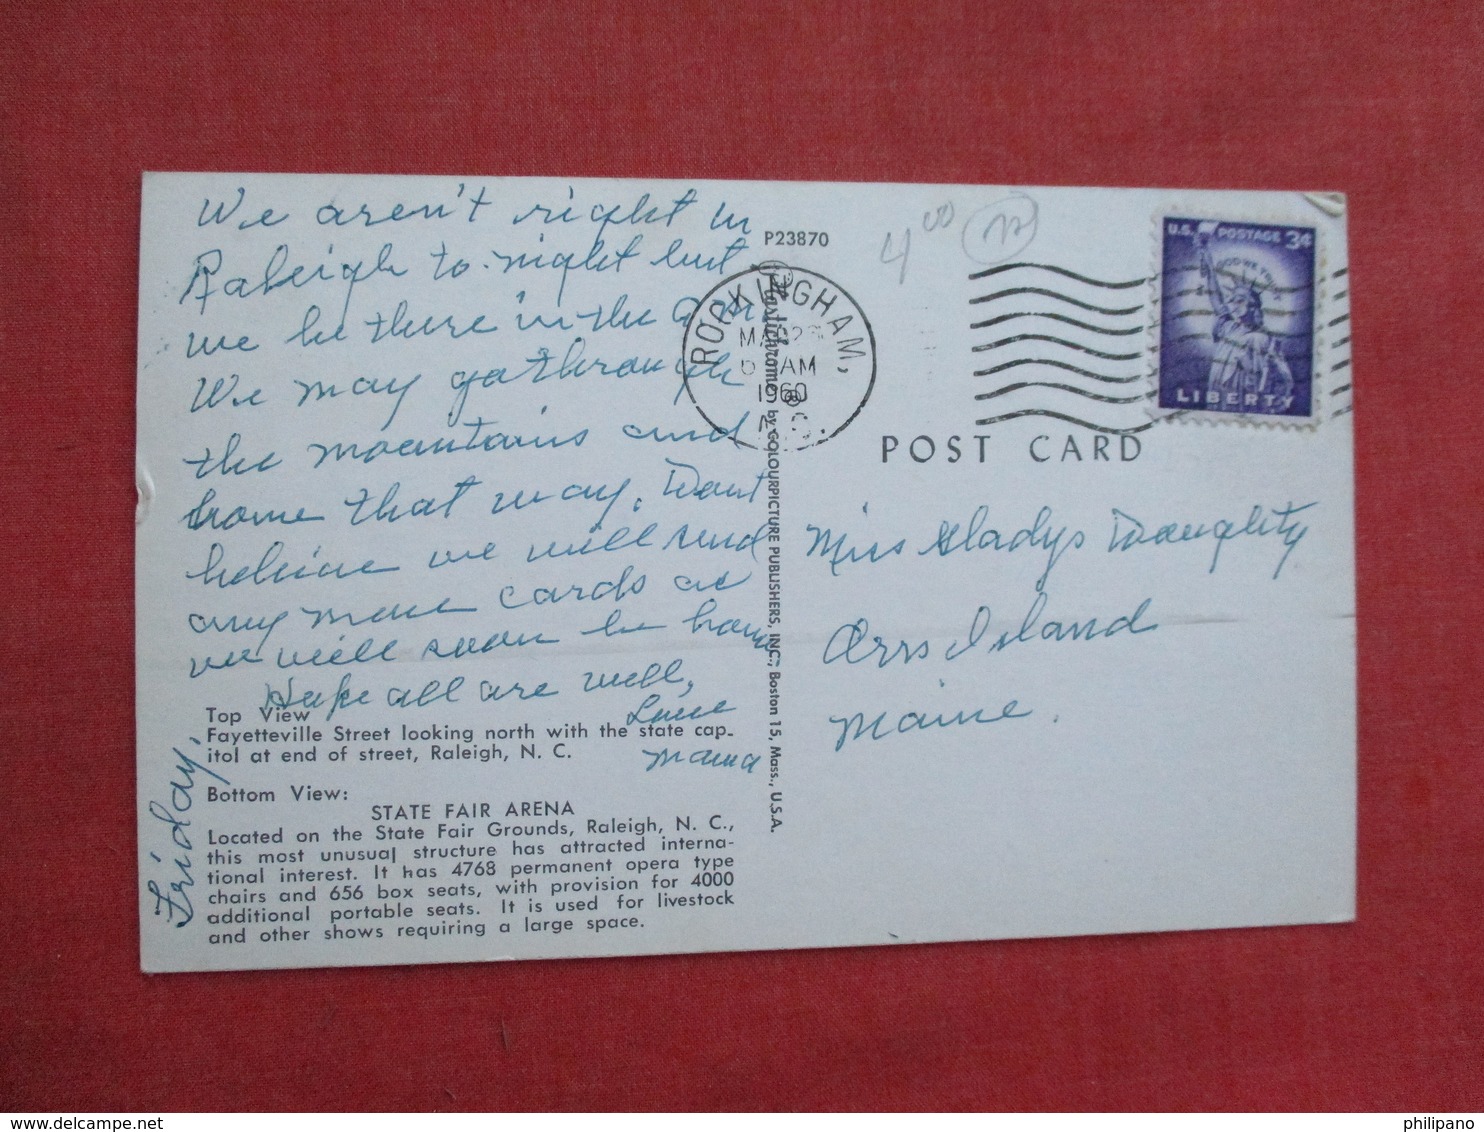 We aren't right in
Raleigh to-night but
we be there in the A.M.
We may go through
the mountains and
home that way. Dont
believe we will send
any more cards as
we will soon be home
Hope all are well,
Love
Mama
Friday,
Top View
Fayetteville Street looking north with the state cap-
itol at end of street, Raleigh, N. C.
Bottom View:
STATE FAIR ARENA
Located on the State Fair Grounds, Raleigh, N. C.,
this most unusual structure has attracted interna-
tional interest. It has 4768 permanent opera type
chairs and 656 box seats, with provision for 4000
additional portable seats. It is used for livestock
and other shows requiring a large space.
P23870
Plastichrome ® by COLOURPICTURE PUBLISHERS, INC., Boston 15, Mass., U.S.A.
ROCKINGHAM,
AM
1960
N.C.
4 00
U.S. POSTAGE 3¢
IN GOD WE TRUST
LIBERTY
POST CARD
Miss Gladys Doughty
Orrs Island
Maine.
delcampe.net
philipano